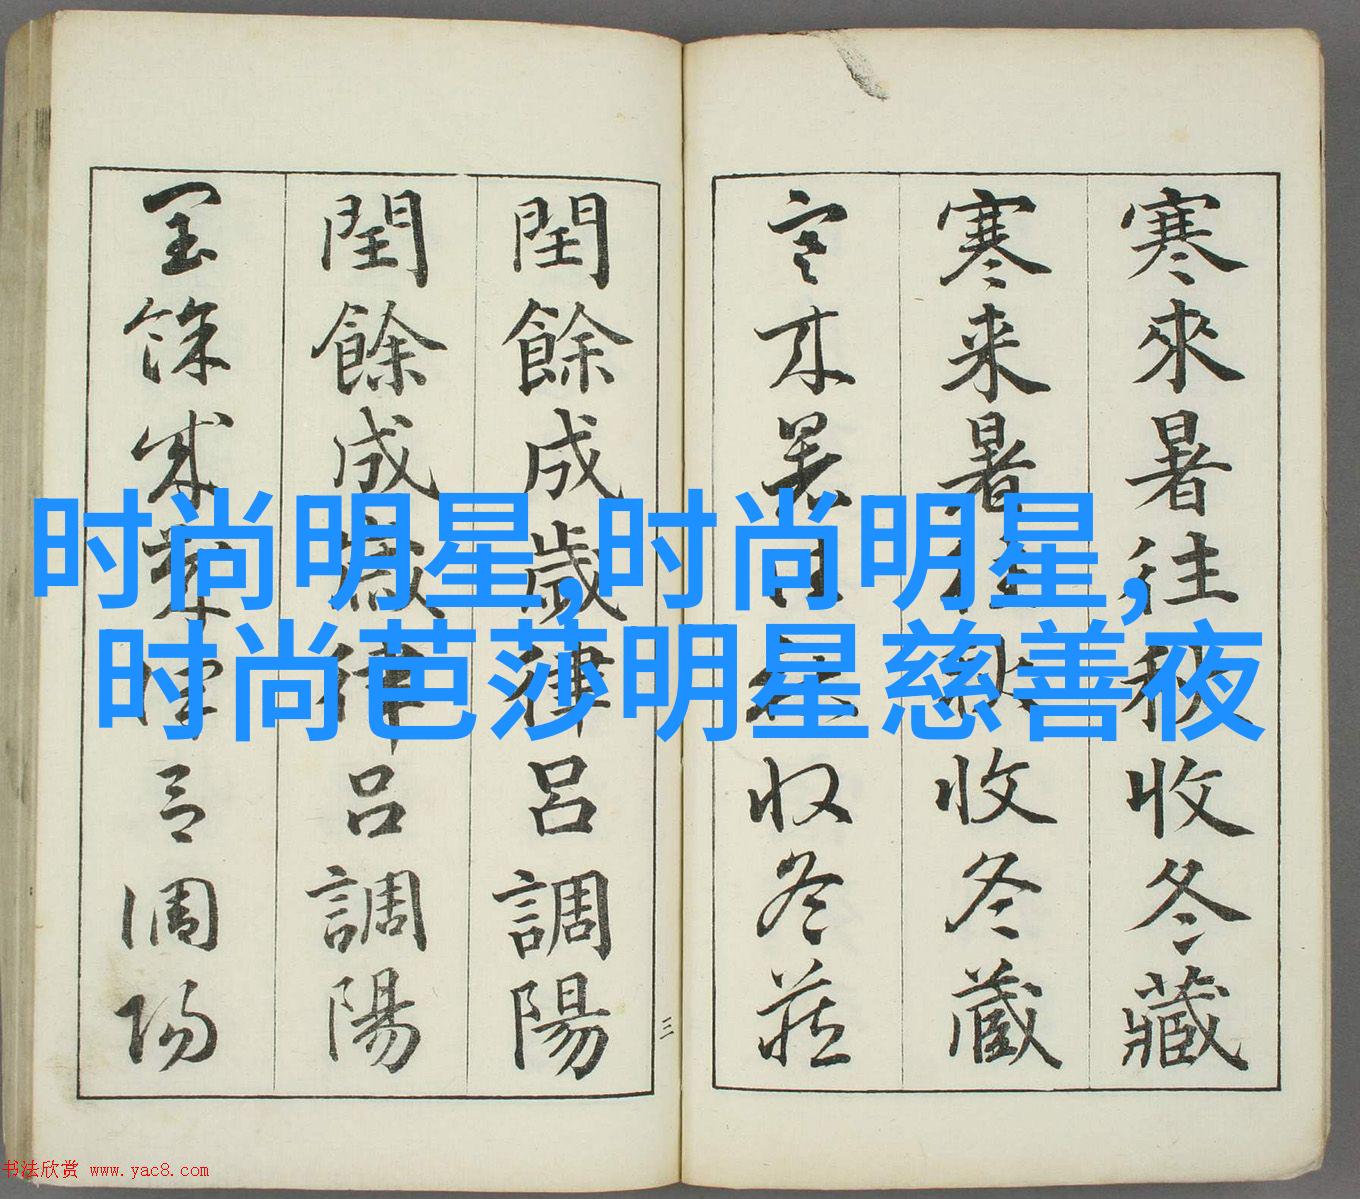 寒來暑往秋收冬藏
寒来暑往秋收冬藏
寒来暑往秋收冬藏
閏餘成歲律呂調陽
閏餘成歲律呂調陽
閏餘成歲律呂調陽
三
时尚明星,时尚明星,
时尚芭莎明星慈善夜
书法欣赏 www.yac8.com